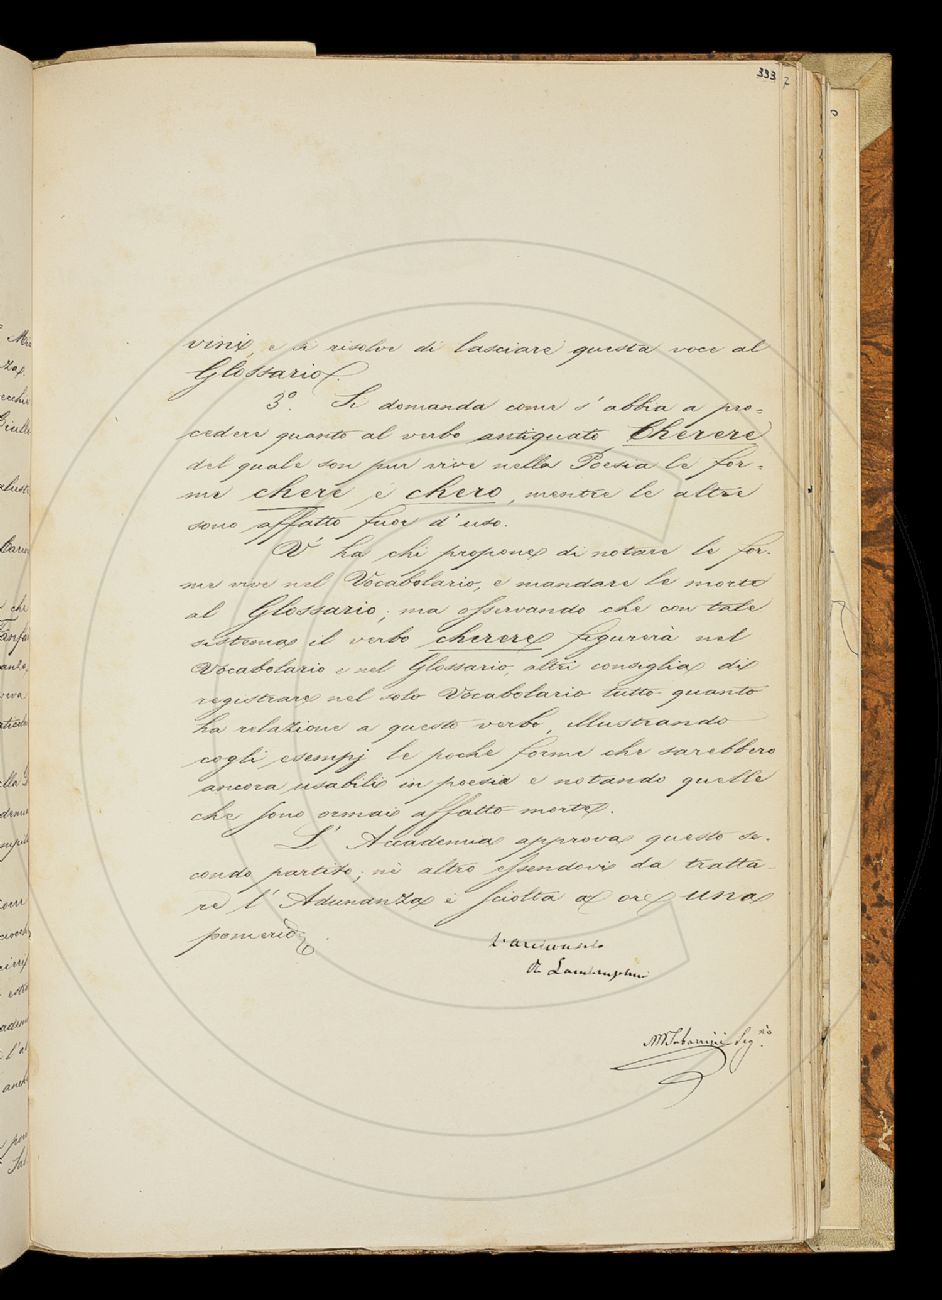 393
vini, e si risolve di lasciare questa voce al
Glossario.
3º. Si domanda come s'abbia a pro=
cedere quanto al verbo antiquato Cherere
del quale son pur vive nella Poesia le for=
me chere e chero, mentre le altre
sono affatto fuor d'uso.
V'ha chi propone di notare le for-
me vive nel Vocabolario, e mandare le morte
al Glossario; ma osservando che con tale
sistema il verbo cherere figurerà nel
Vocabolario e nel Glossario, altri consiglia di
registrare nel solo Vocabolario tutto quanto
ha relazione a questo verbo, illustrando
cogli esempj le poche forme che sarebbero
ancora usabili in poesia e notando quelle
che sono ormai affatto morte.
L'Accademia approva questo se-
condo partito; nè altro essendovi da tratta-
re l'Adunanza è sciolta a ore una
pomerid.
L'arciconsolo
R. Lambruschini
M Tabarrini Seg.rio